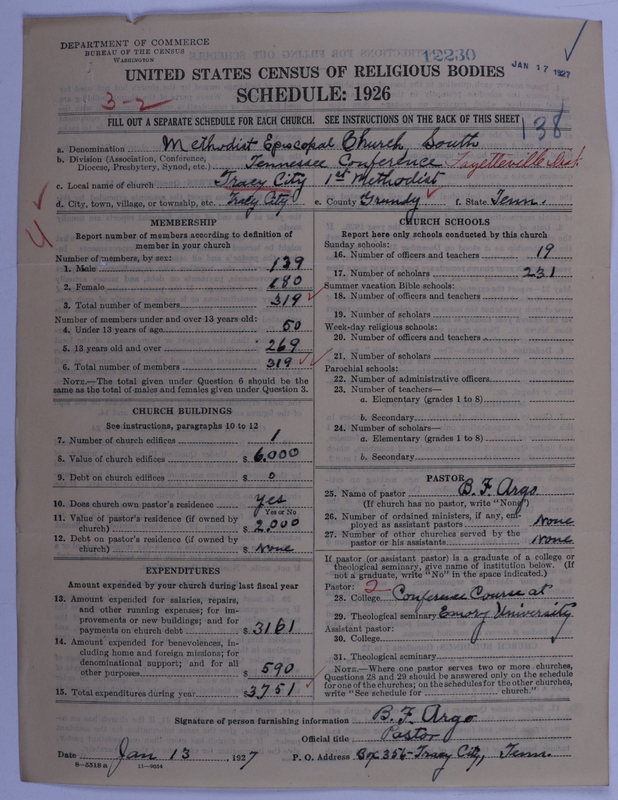 DEPARTMENT OF COMMERCE
BUREAU OF THE CENSUS
WASHINGTON
12230
JAN 17 1927
UNITED STATES CENSUS OF RELIGIOUS BODIES
SCHEDULE: 1926
3-2
FILL OUT A SEPARATE SCHEDULE FOR EACH CHURCH. SEE INSTRUCTIONS ON THE BACK OF THIS SHEET
138
a. Denomination Methodist Episcopal Church, South
b. Division (Association, Conference, Diocese, Presbytery, Synod, etc.) Tennessee Conference Fayetteville Dist.
c. Local name of church Tracy City 1st Methodist
d. City, town, village, or township, etc. Tracy City e. County Grundy f. State Tenn.
MEMBERSHIP
Report number of members according to definition of member in your church
Number of members, by sex:
1. Male 139
2. Female 180
3. Total number of members 319
Number of members under and over 13 years old:
4. Under 13 years of age 50
5. 13 years old and over 269
6. Total number of members 319
NOTE.—The total given under Question 6 should be the same as the total of males and females given under Question 3.
CHURCH BUILDINGS
See instructions, paragraphs 10 to 12
7. Number of church edifices 1
8. Value of church edifices $ 6,000
9. Debt on church edifices $ 0
10. Does church own pastor's residence Yes
Yes or No
11. Value of pastor's residence (if owned by church) $ 2,000
12. Debt on pastor's residence (if owned by church) $ None
EXPENDITURES
Amount expended by your church during last fiscal year
13. Amount expended for salaries, repairs, and other running expenses; for improvements or new buildings; and for payments on church debt $ 3161
14. Amount expended for benevolences, including home and foreign missions; for denominational support; and for all other purposes $ 590
15. Total expenditures during year $ 3751
CHURCH SCHOOLS
Report here only schools conducted by this church
Sunday schools:
16. Number of officers and teachers 19
17. Number of scholars 231
Summer vacation Bible schools:
18. Number of officers and teachers
19. Number of scholars
Week-day religious schools:
20. Number of officers and teachers
21. Number of scholars
Parochial schools:
22. Number of administrative officers
23. Number of teachers—
a. Elementary (grades 1 to 8)
b. Secondary
24. Number of scholars—
a. Elementary (grades 1 to 8)
b. Secondary
PASTOR
25. Name of pastor B. F. Argo
(If church has no pastor, write "None")
26. Number of ordained ministers, if any, employed as assistant pastors None
27. Number of other churches served by the pastor or his assistants None
If pastor (or assistant pastor) is a graduate of a college or theological seminary, give name of institution below. (If not a graduate, write "No" in the space indicated.)
Pastor: 2
28. College Conference Course at
29. Theological seminary Emory University
Assistant pastor:
30. College
31. Theological seminary
NOTE.—Where one pastor serves two or more churches, Questions 28 and 29 should be answered only on the schedule for one of the churches; on the schedules for the other churches, write "See schedule for church."
Signature of person furnishing information B. F. Argo
Official title Pastor
Date Jan 13, 1927 P. O. Address Box 356-Tracy City, Tenn.
8—5518 a 11—9954